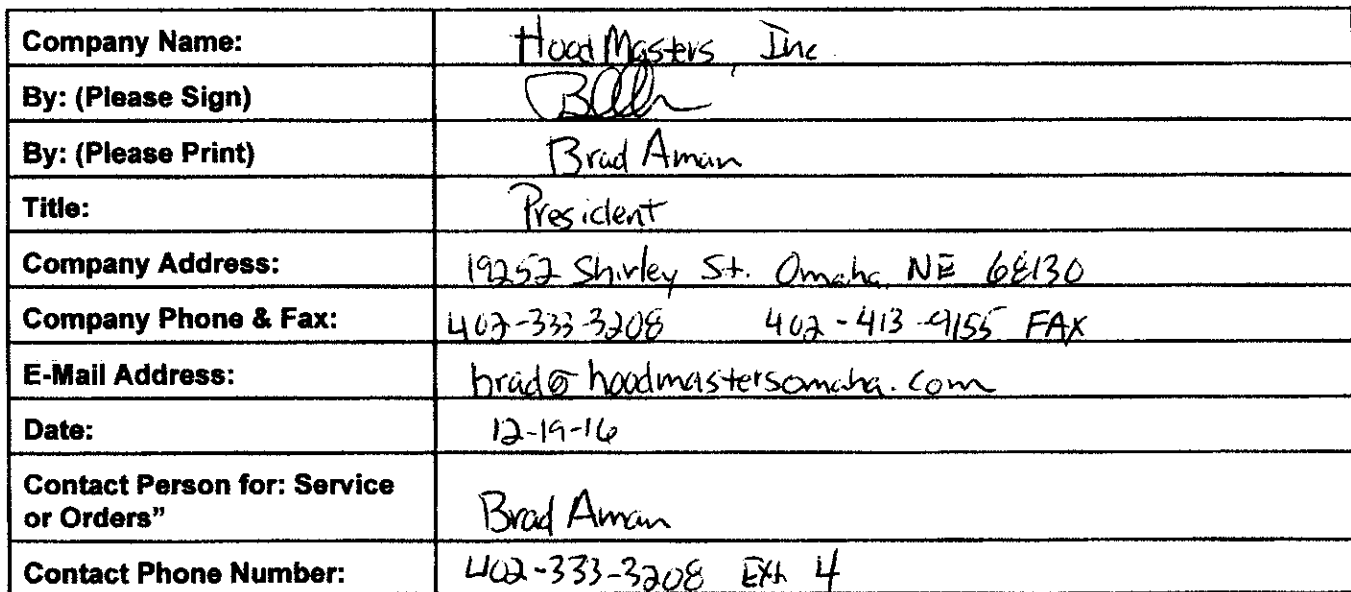 Company Name: Hood Masters, Inc.
By: (Please Sign)
By: (Please Print) Brad Aman
Title: President
Company Address: 19252 Shirley St. Omaha, NE 68130
Company Phone & Fax: 402-333-3208 402-413-9155 FAX
E-Mail Address: brad@hoodmastersomaha.com
Date: 12-19-16
Contact Person for: Service
or Orders” Brad Aman
Contact Phone Number: 402-333-3208 Ext 4